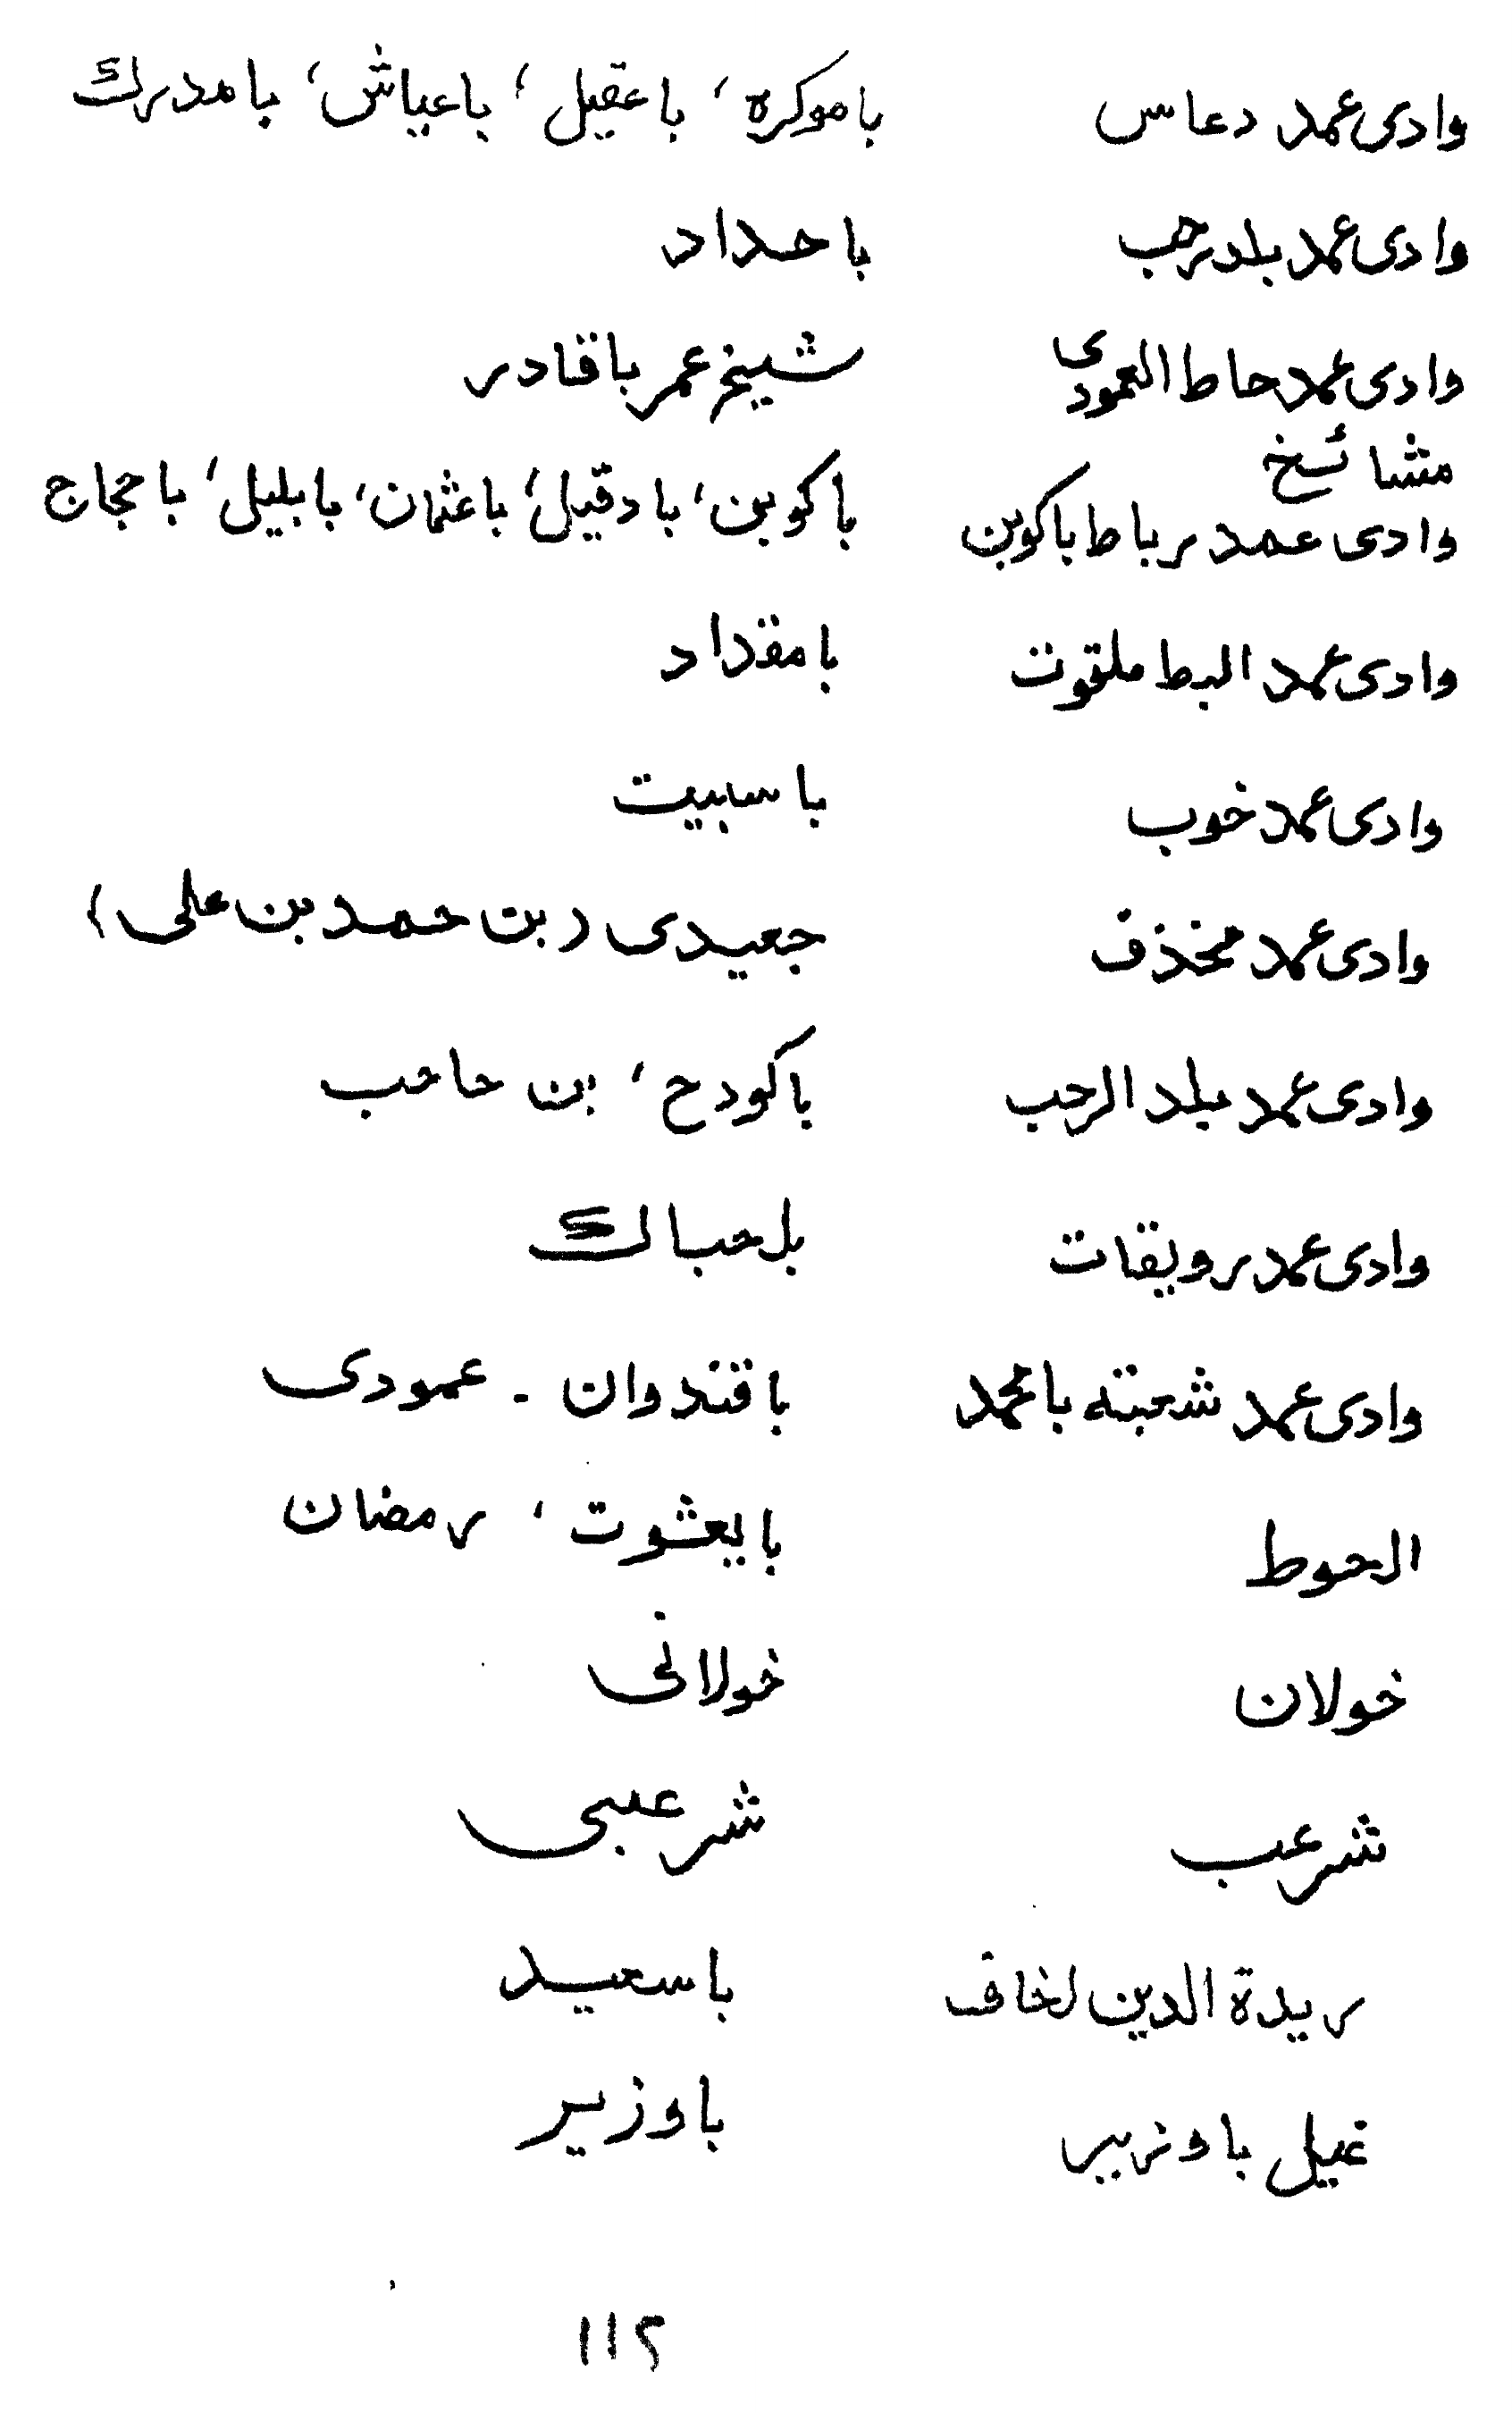 وادی عمد دعاس باموکره، باعقیل، باعیاش، بامدرک
وادی عمد بلد رحب باحداد
وادی عمد حاط العمودی شیخ عمر باقادر
مشائخ
وادی عمد رباط باکوبن باکوبن، بادقیل، باعثمان، بابلیل، باحجاج
وادی عمد البط ملقوت بامقداد
وادی عمد خوب باسبیت
وادی عمد مخذف جعیدی (بن حمد بن علی)
وادی عمد بلد الرحب باکودح، بن حاحب
وادی عمد رویقات بل حباک
وادی عمد شعبته بامحمد باقندوان - عمودی
الحوط بایعشوت، رمضان
خولان خولانی
شرعب شرعبی
ریدة الدین لخاف باسعید
غیل باوزیر باوزیر
۱۱۲